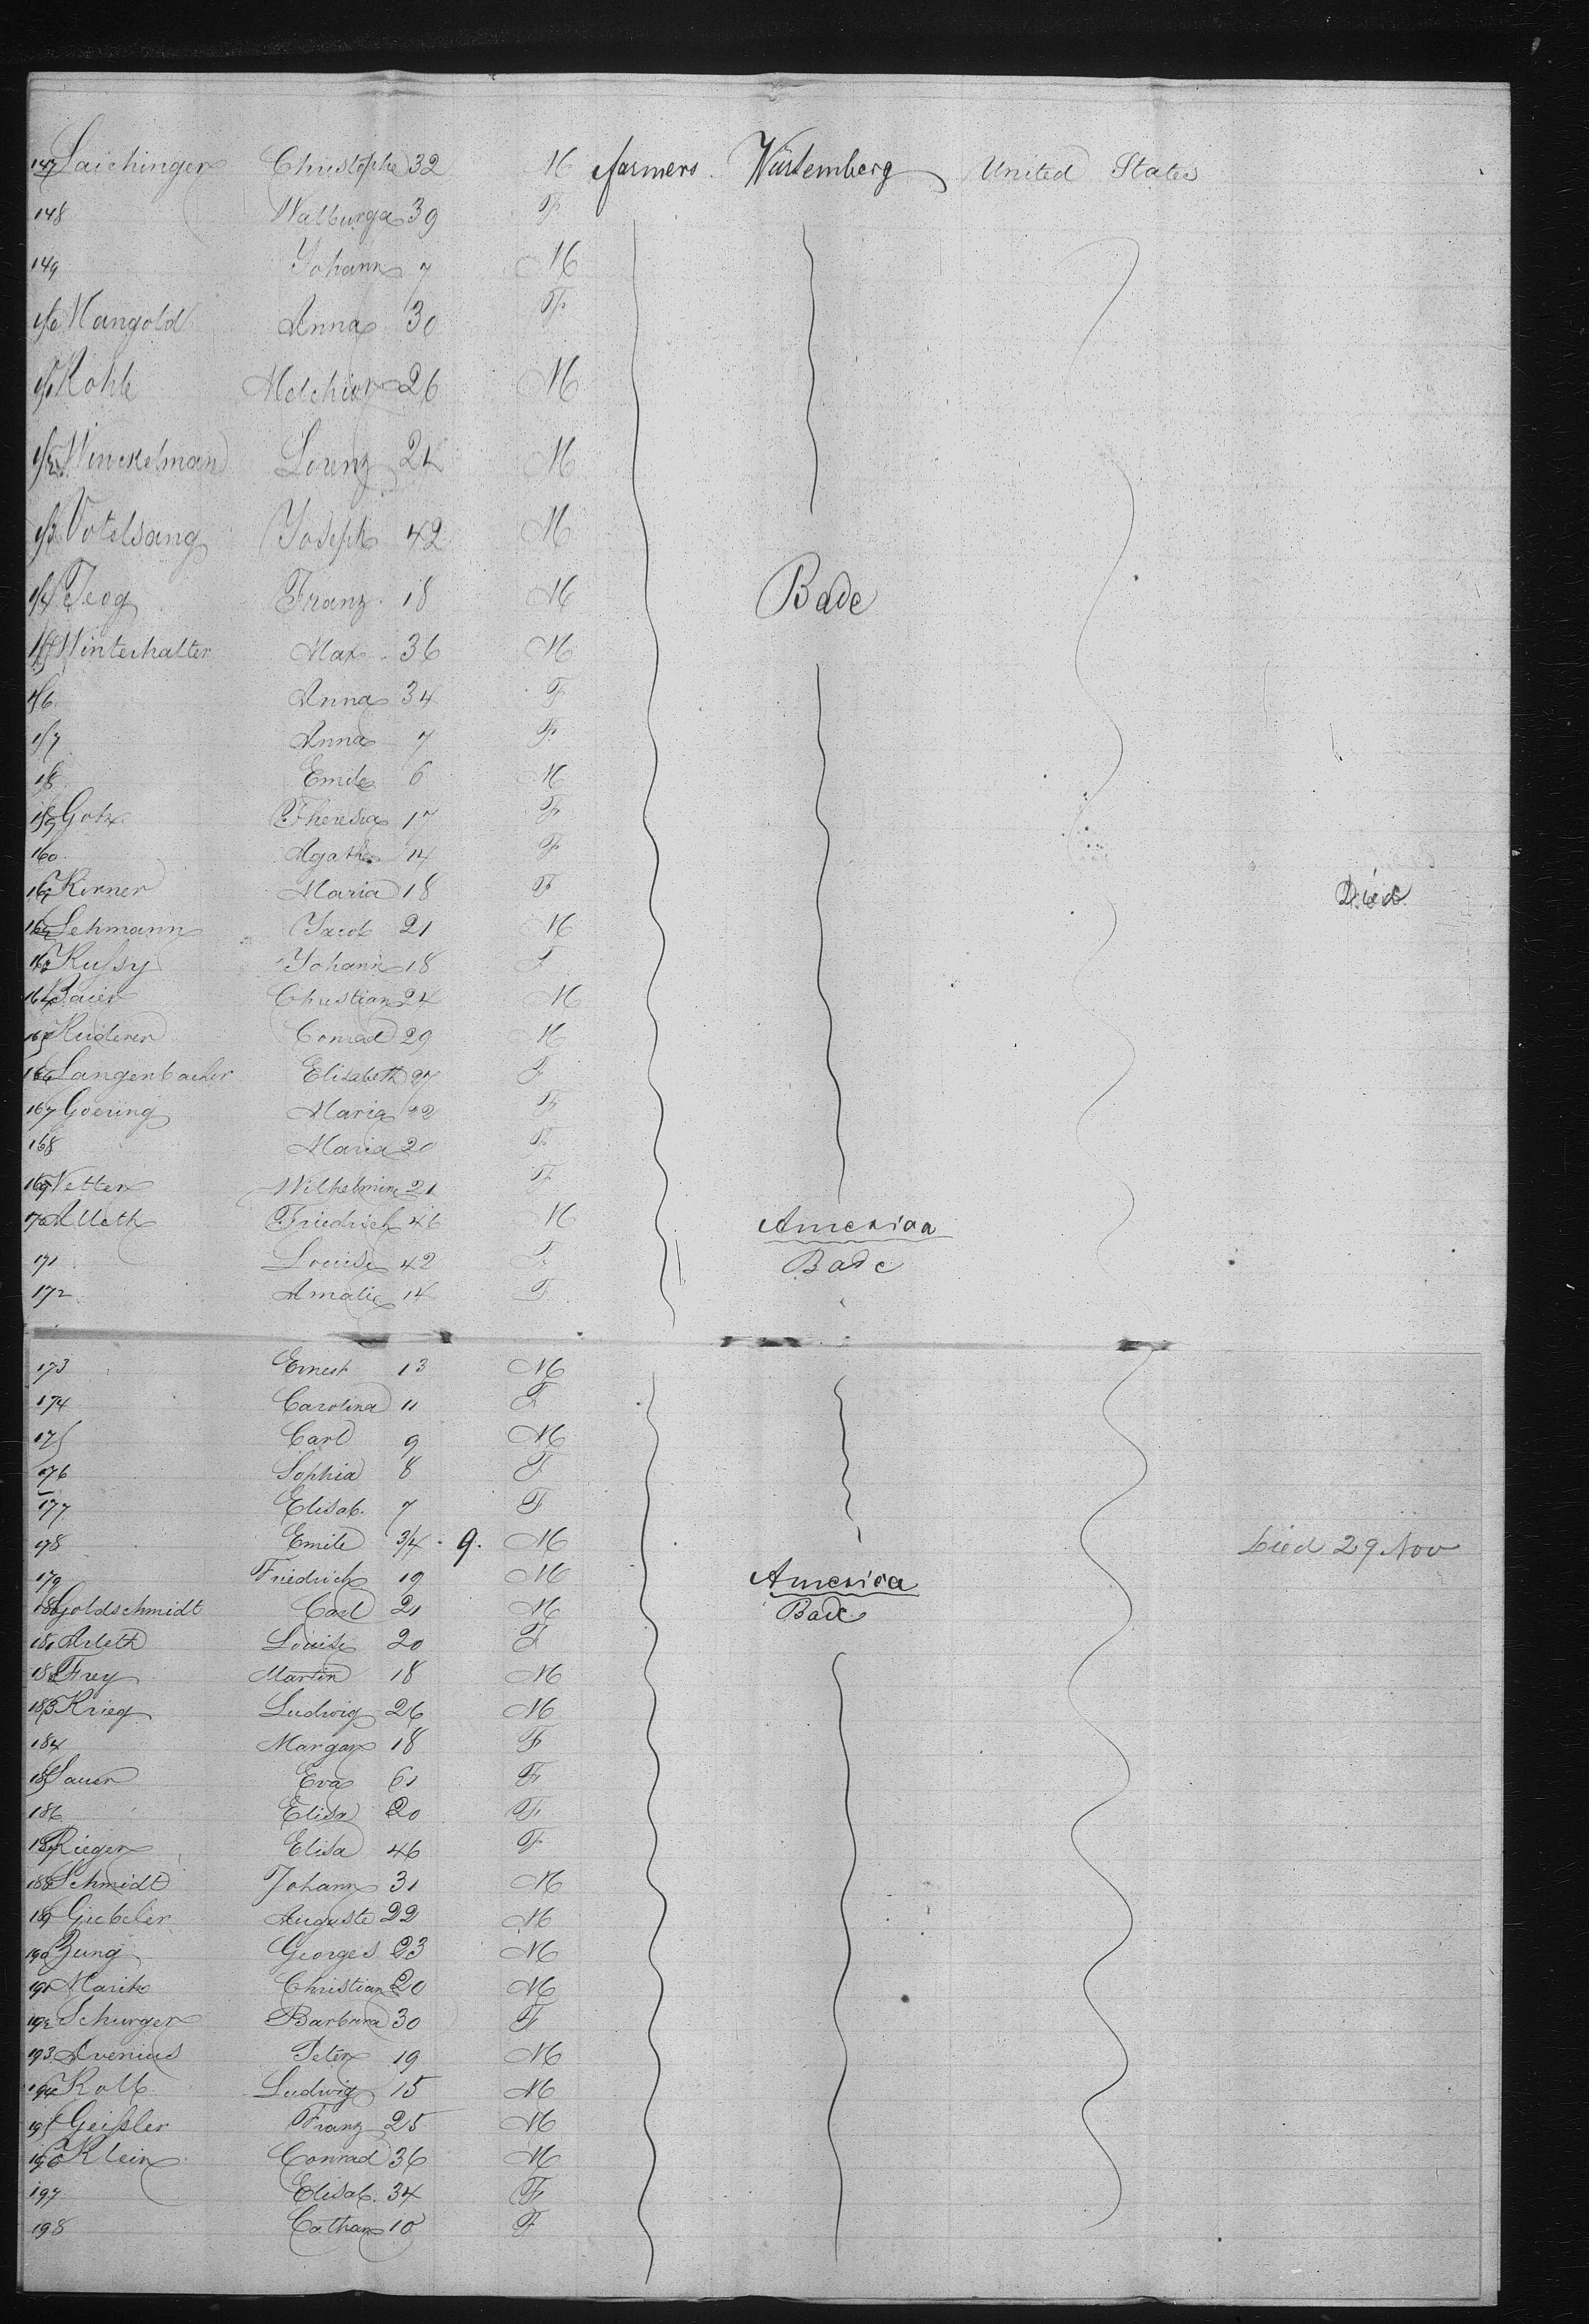 147 Laichinger Christophe 32 M farmers Würtemberg United States
148 Walburga 39 F
149 Johann 7 M
150 Mangold Anna 30 F
151 Kohle Melchior 26 M
152 Winckelmann Lorenz 24 M
153 Votelsang Joseph 42 M
154 Franz 18 M Bade
155 Winterhalter Max 36 M
156 Anna 34 F
157 Anna 7 F
158 Emile 6 M
159 Gotz Theresia 17 F
160 Agathe 14 F
161 Kirner Maria 18 F Died
162 Lehmann Jacob 21 M
163 Kussy Johann 18 F
164 Baier Christian 24 M
165 Ruderer Conrad 29 M
166 Langenbacher Elisabeth 27 F
167 Goering Maria 22 F
168 Maria 20 F
169 Vetter Wilhelmine 21 F
170 Friedrich 46 M America
171 Louise 42 F Bade
172 Amalie 14 F
173 Ernest 13 M
174 Carolina 11 F
175 Carl 9 M
176 Sophia 8 F
177 Elisab. 7 F
178 Emile 3/4 . 9. M Died 29 Nov
179 Friedrich 19 M America
180 Goldschmidt Carl 21 M Bade
181 Arleth Louise 20 F
182 Frey Martin 18 M
183 Krieg Ludwig 26 M
184 Margar 18 F
185 Sauer Eva 61 F
186 Elisa 20 F
187 Rieger Elisa 46 F
188 Schmidt Johann 31 M
189 Giebeler Auguste 22 M
190 Jung Georges 23 M
191 Christian 20 M
192 Schurger Barbara 30 F
193 Avenius Peter 19 M
194 Kolb Ludwig 15 M
195 Geissler Franz 25 M
196 Klein Conrad 36 M
197 Elisab. 34 F
198 Cathar 10 F